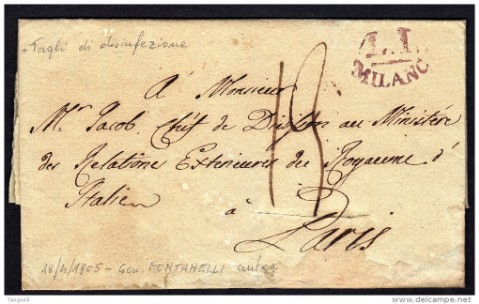 Tagli di disinfezione
L.I.
MILANO
A Monsieur
Mr Jacob, Chef de Division au Ministére
des Relations Exterieures du Royaume d'
Italien
à
13
Paris
18/4/1805 - Gen. FONTANELLI autog.
delcampe.net